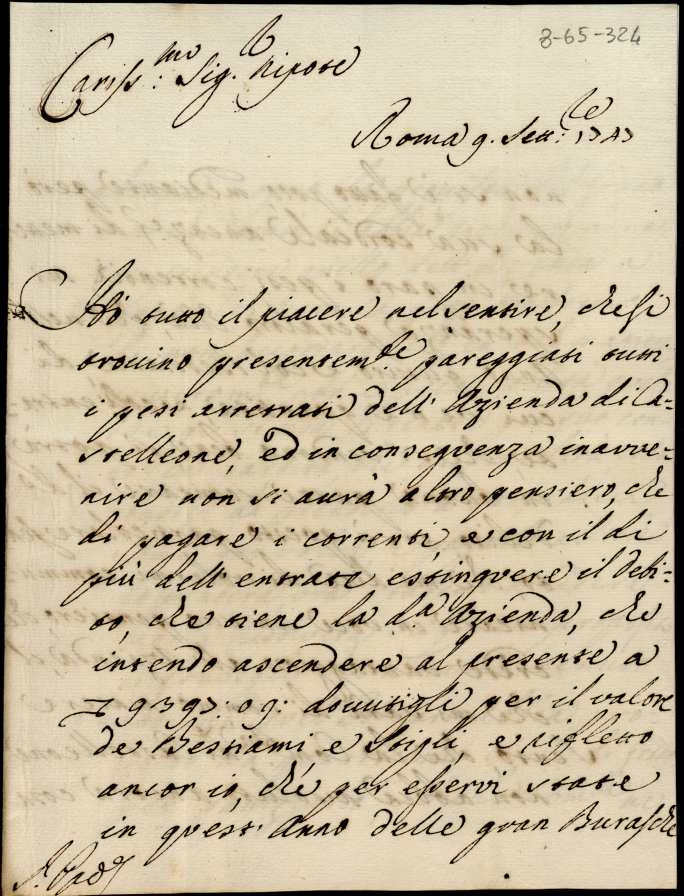 8-65-324
Cariss.mo Sig.r Nipote
Roma 9. Sett:re 1747
Hò tutto il piacere nel sentire, che si
trovino presentem.te pareggiati tutti
i pesi arretrati dell' Azienda di Ca=
stelleone, ed in conseguenza in avve=
nire non si avrà altro pensiero, che
di pagare i correnti, e con il di
più dell' entrate estinguere il debi=
to, che tiene la d.a Azienda, che
intendo ascendere al presente a
9397: 09: dovutigli per il valore
de Bestiami, e Stigli, e rifletto
ancor io, che per esservi state
in quest' Anno delle gran Burasche